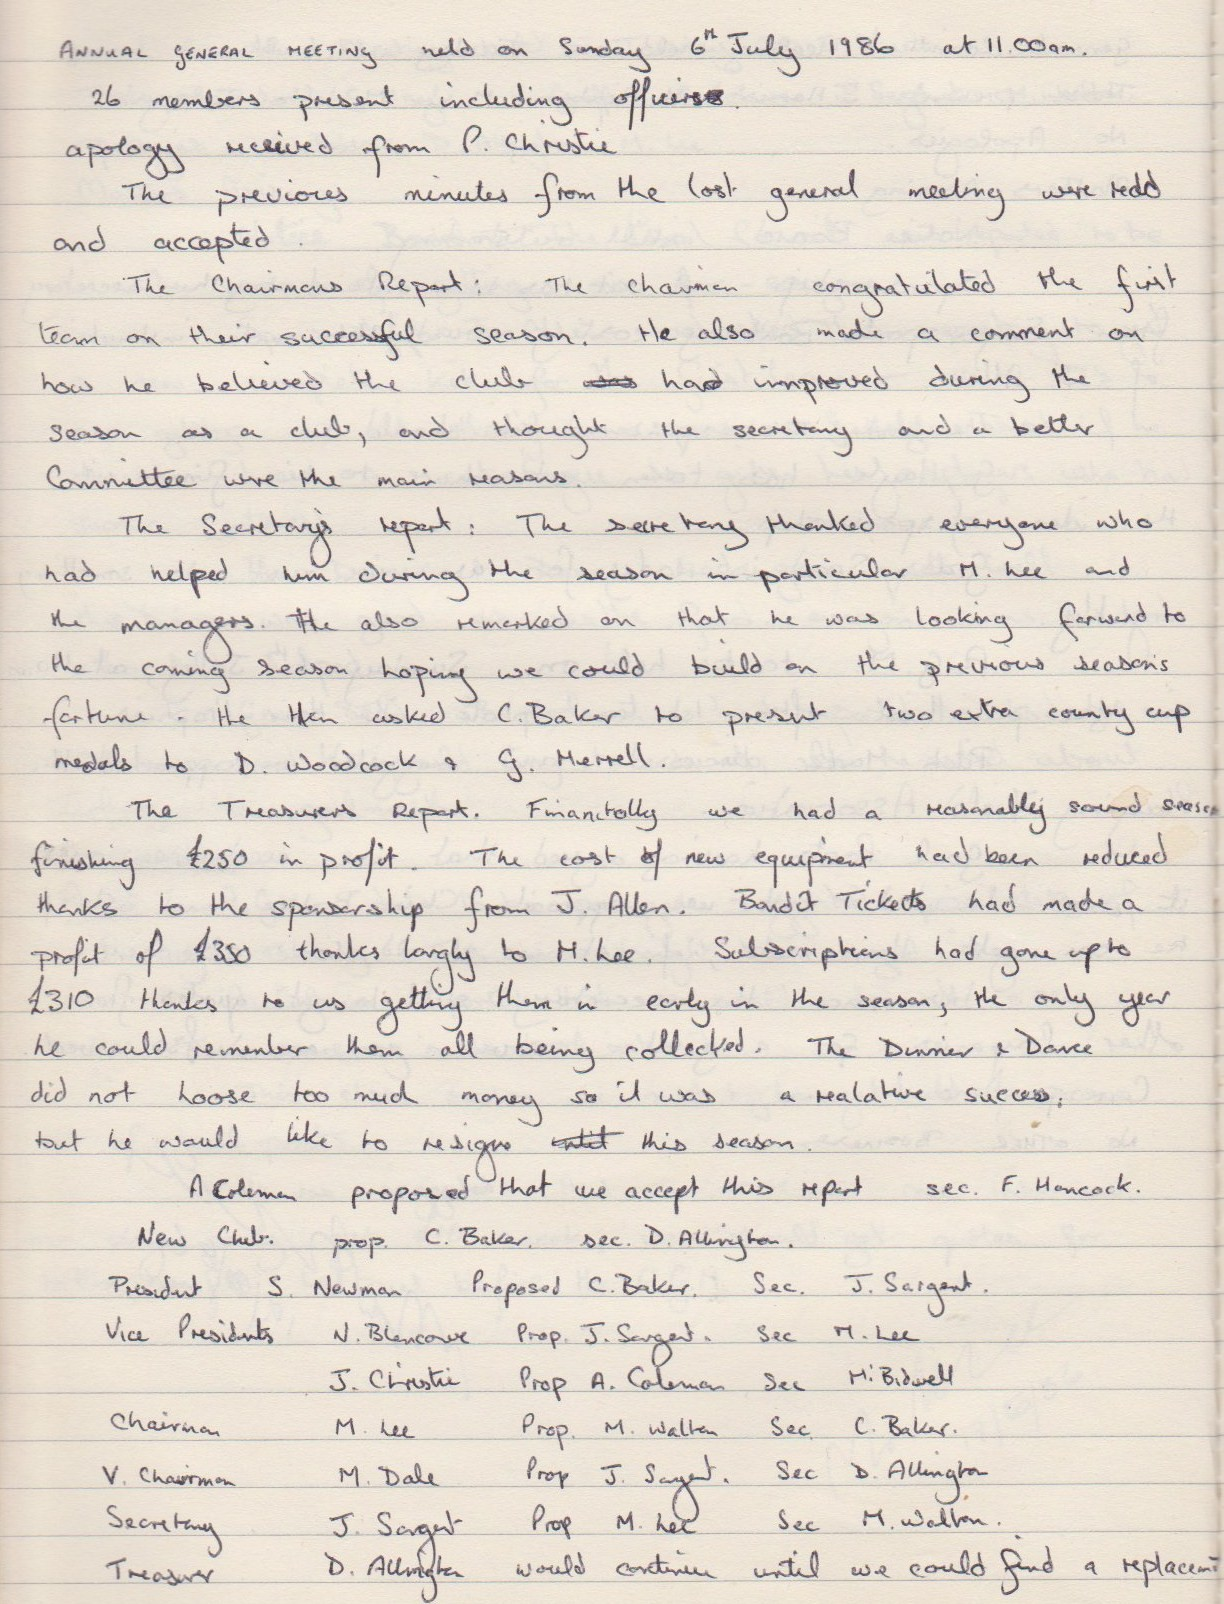 ANNUAL GENERAL MEETING held on Sunday 6th July 1986 at 11.00am.
26 members present including officers.
apology received from P. Christie
The previous minutes from the last general meeting were read
and accepted.
The Chairmans Report: The chairman congratulated the first
team on their successful season. He also made a comment on
how he believed the club had improved during the
season as a club, and thought the secretary and a better
Committee were the main reasons.
The Secretary's report: The secretary thanked everyone who
had helped him during the season in particular M. Lee and
the managers. He also remarked on that he was looking forward to
the coming season hoping we could build on the previous season's
fortune. He then asked C. Baker to present two extra county cup
medals to D. Woodcock & G. Merrell.
The Treasurers Report. Financially we had a reasonably sound season
finishing £250 in profit. The cost of new equipment had been reduced
thanks to the sponsorship from J. Allen. Bandit Tickets had made a
profit of £350 thanks largly to M. Lee. Subscriptions had gone up to
£310 thanks to us getting them in early in the season, the only year
he could remember them all being collected. The Dinner & Dance
did not loose too much money so it was a realative success,
but he would like to resign this season.
A Coleman proposed that we accept this report sec. F. Hancock.
New Club. prop. C. Baker. sec. D. Allington.
President S. Newman Proposed C. Baker. Sec. J. Sargent.
Vice Presidents N. Blencowe Prop. J. Sargent. Sec M. Lee
J. Christie Prop A. Coleman Sec M. Bidwell
Chairman M. Lee Prop. M. Walton Sec C. Baker.
V. Chairman M. Dale Prop J. Sargent. Sec D. Allington
Secretary J. Sargent Prop M. Lee Sec M. Walton.
Treasurer D. Allington would continue until we could find a replacement